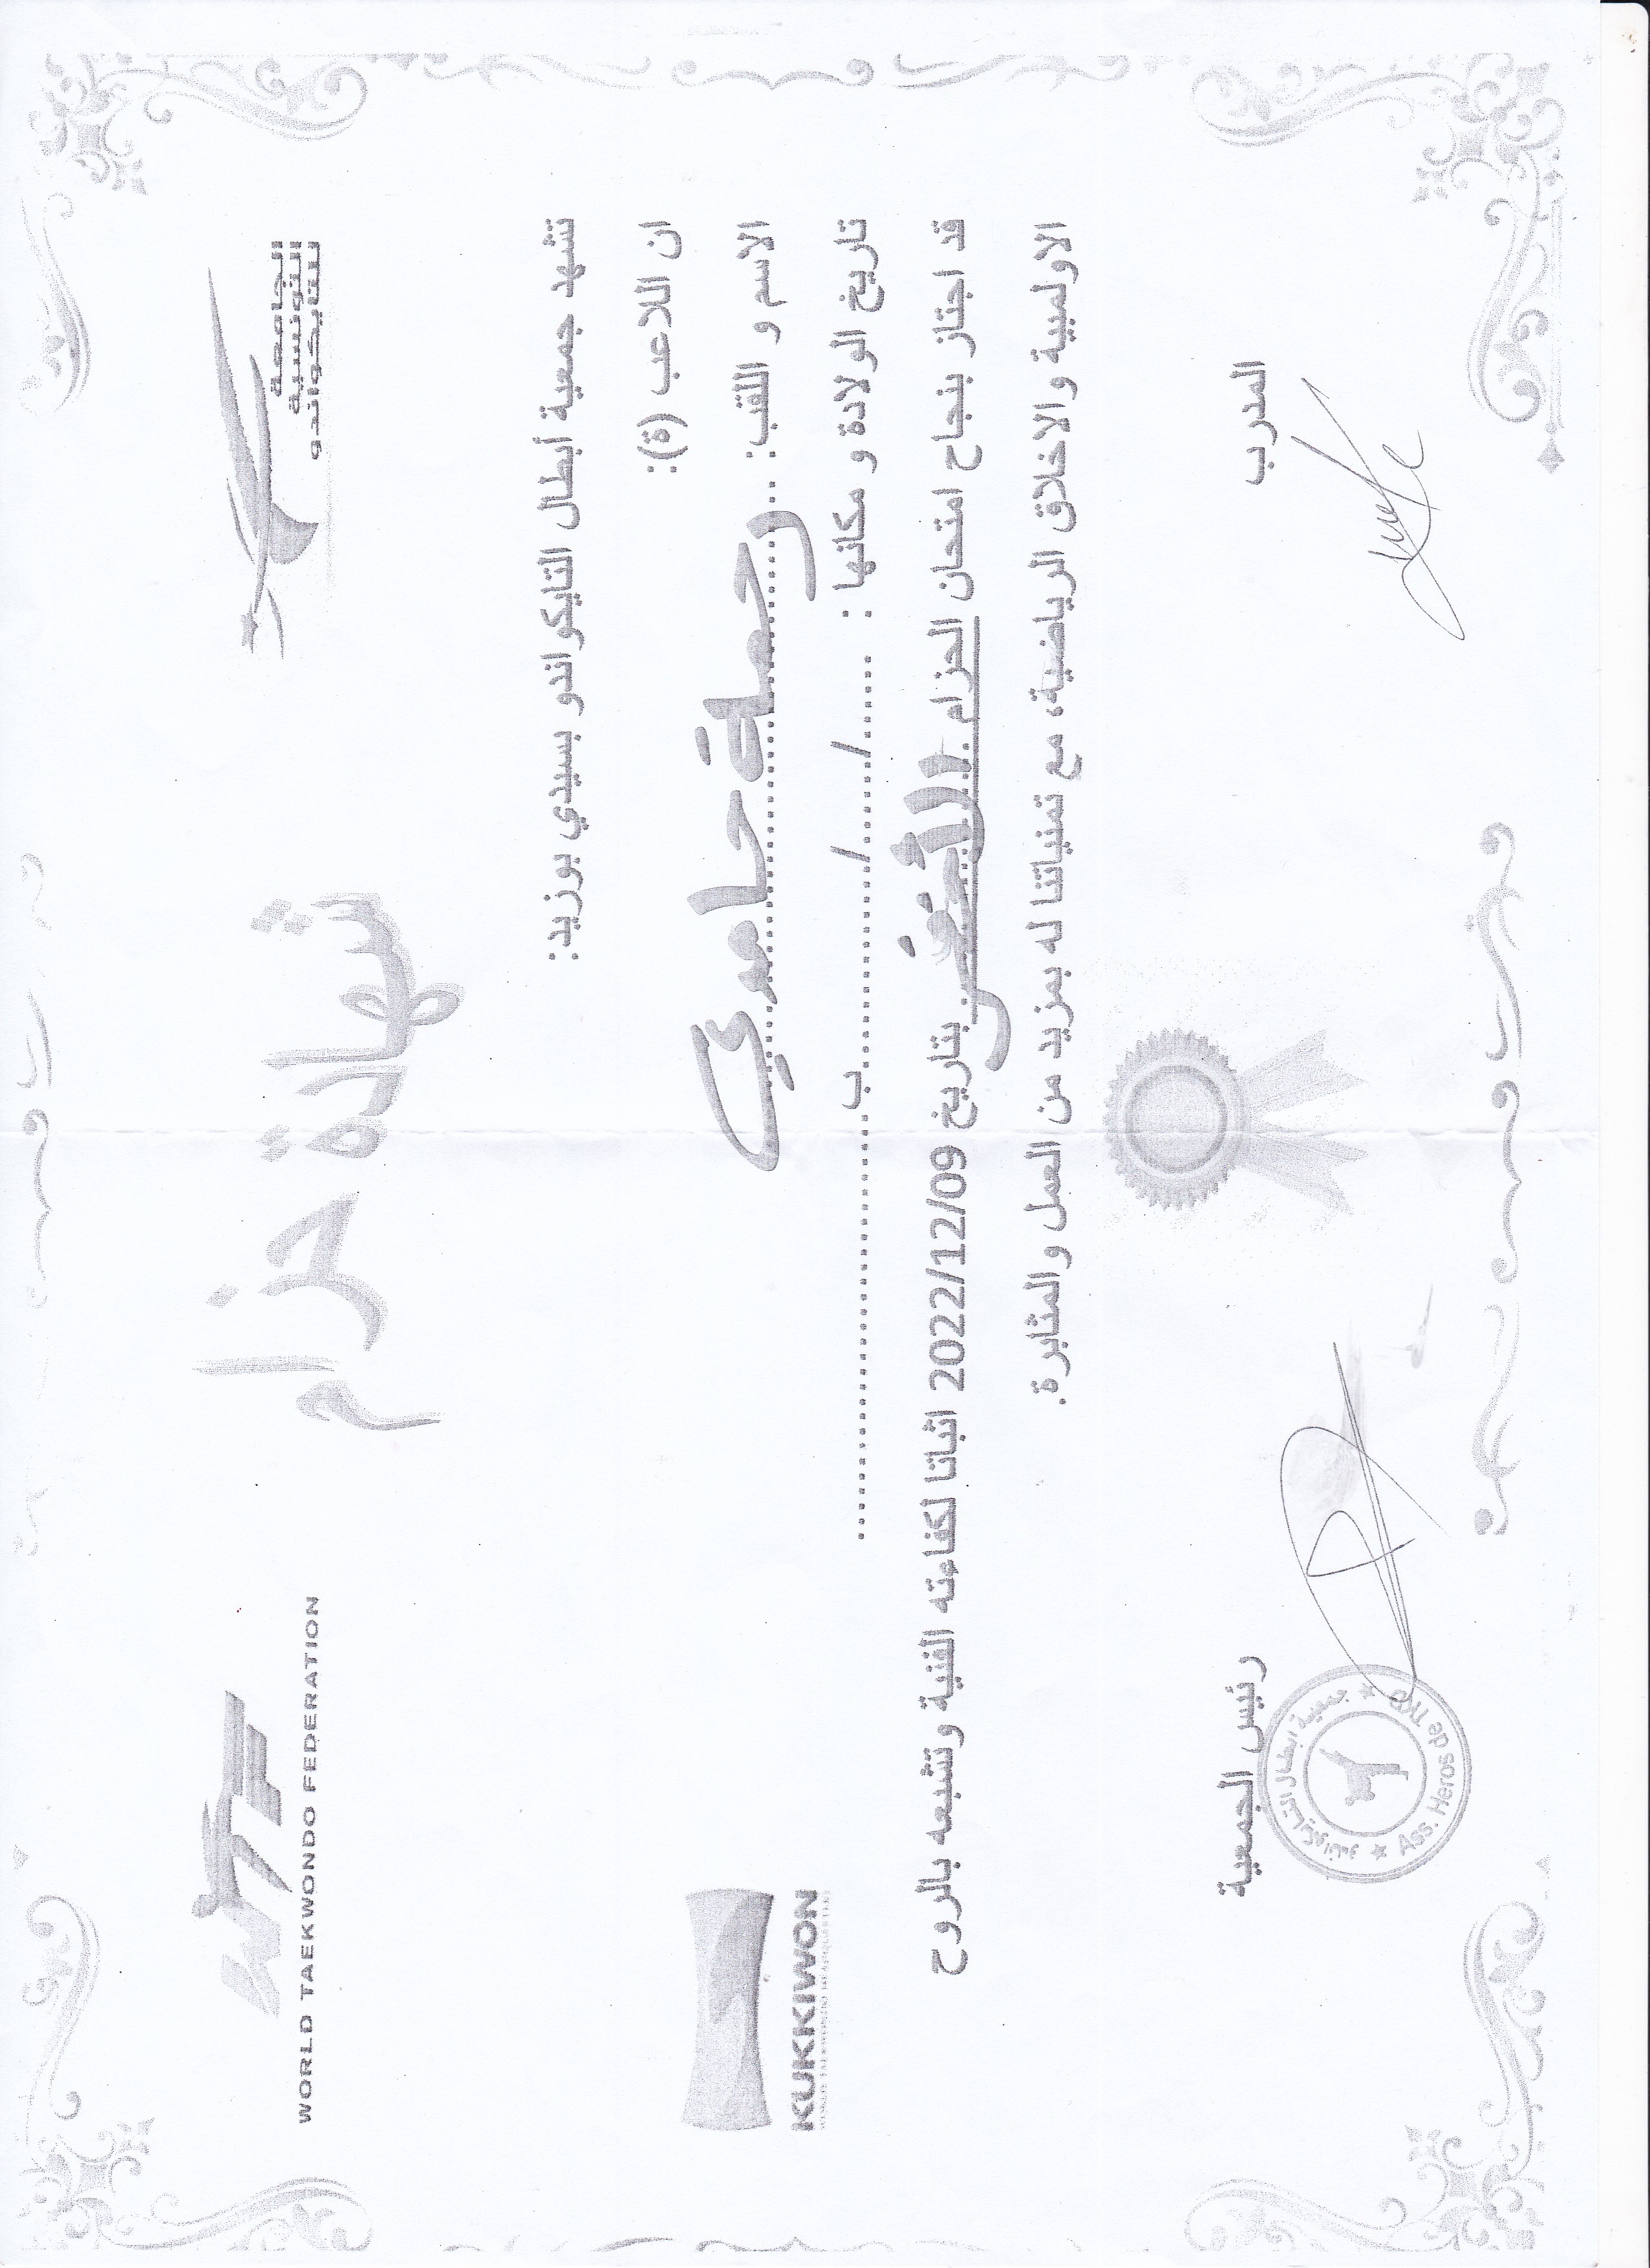 الجامعة
التونسية
للتايكواندو
شهادة حزام
WORLD TAEKWONDO FEDERATION
تشهد جمعية أبطال التايكواندو بسيدي بوزيد:
ان اللاعب (ة):
الاسم و اللقب: رحمة حامدي
KUKKIWON
تاريخ الولادة و مكانها: ....../....../..............ب..............................
قد اجتاز بنجاح امتحان الحزام الأخضر بتاريخ 2022/12/09 اثباتا لكفاءته الفنية وتشبعه بالروح
الاولمبية والاخلاق الرياضية، مع تمنياتنا له بمزيد من العمل والمثابرة.
المدرب
رئيس الجمعية
جمعية ابطال التايكواندو
Ass. Heros de TKD